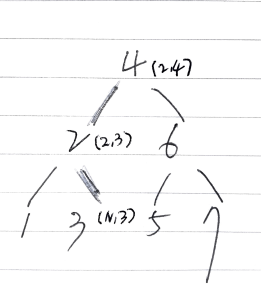 4 (2,4)
2 (2,3) 6
1 3 (N,3) 5 7